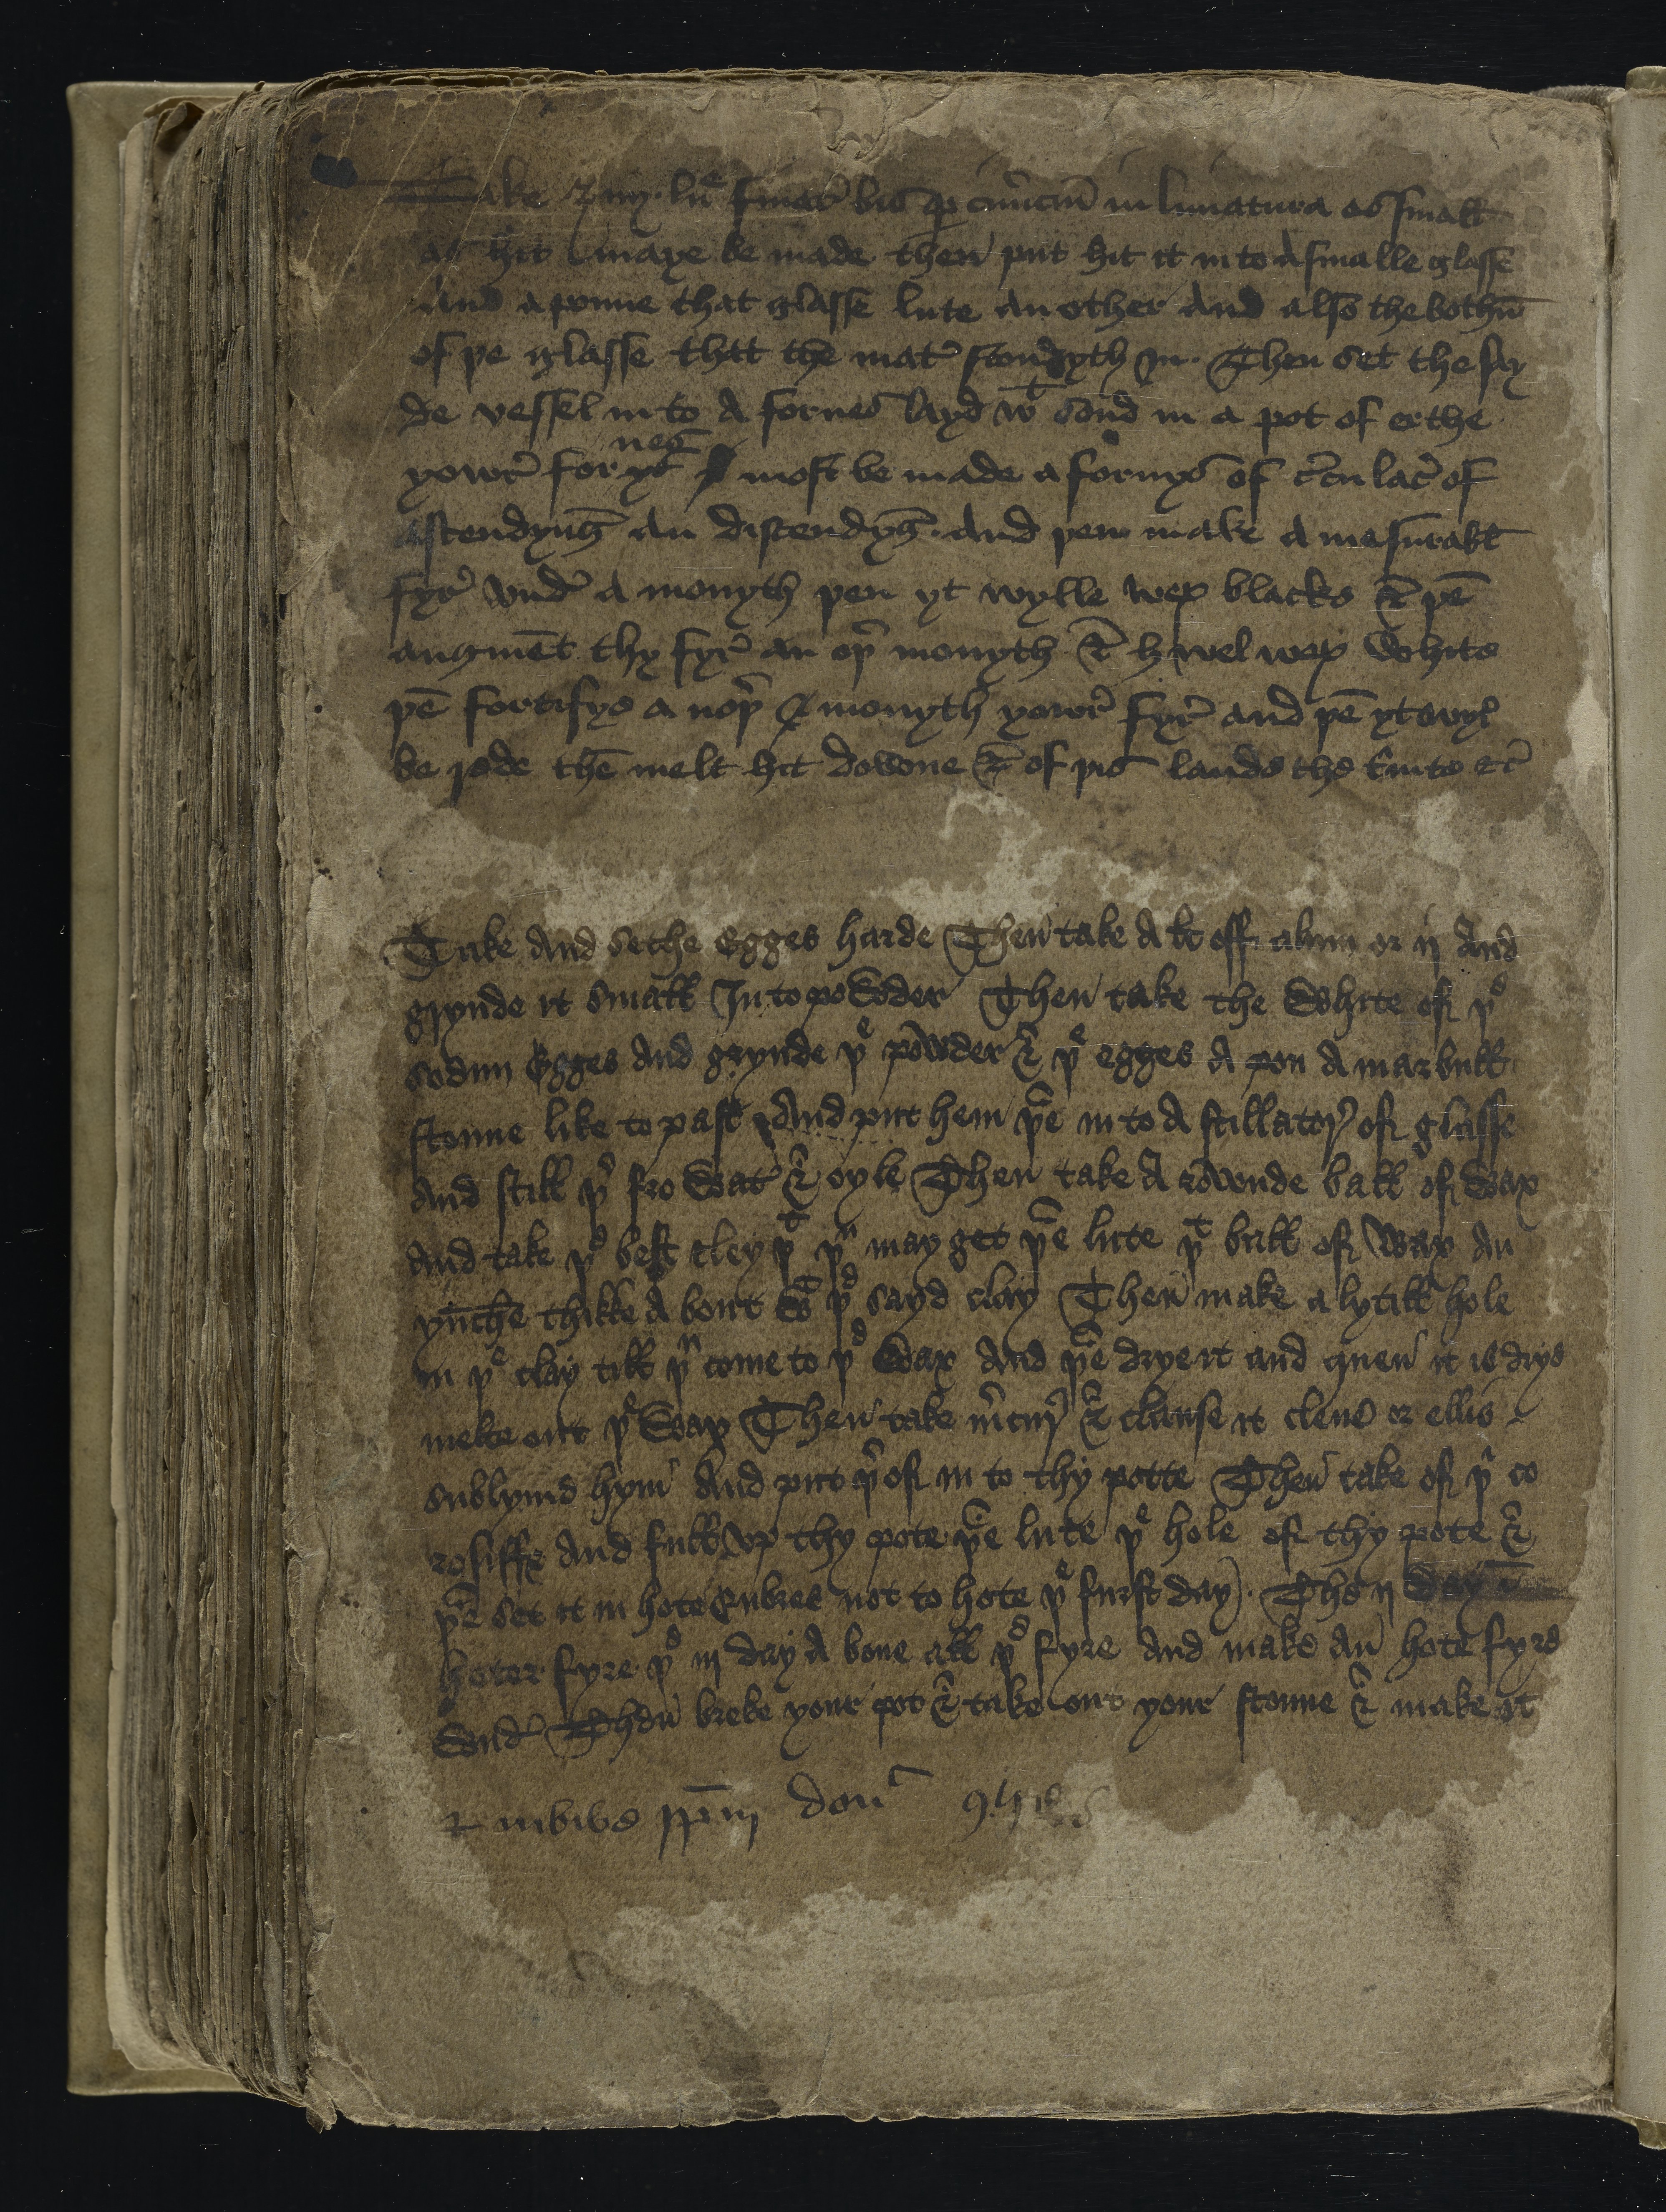 Take ℥ iiij lune in limatura as smalt
as hit maye be made then put hit it in to A smalle glasse
And a ponne that glasse lute an other And also the bothū
of þe glasse that the mat̉ stondyth in. Then set the say
de vessel in to A fornes layd wᵗ sond in a pot of erthe
yowr̉ fornes most be made a fornys of c̉culac̉ of
Astendyng̅ an distendyg̅. And þen make A mesurabł
fyr̉ vnd̉ A monyth þen yt wylle wex blacke & þē
augmēt thy fyr̉ an oþ̉ monyth & hit wel wex white
þē fortifye a noþ̉ monyth yowr̉ fyr̉ and þē yt wył
be rede thē melt hit dowone & of þis laude the
Take And sethe Egges harde Then take A łi off alum or ij And
grynde it smałł In to powder Then take the White of þᵉ
sodun Egges And grynde þᵉ powder & þᵉ egges A pon A marbułł
stonne like to past And put hem þāe in to A stillatory of glasse
And stiłł þ̉ fro Wat̉ & oyle Then take A rownde bałł of Wax
And take þᵉ best cley þᵗ þᵘ may get þāe lute þᵗ bałł of Wax An
ynche thikke A bout Wᵗ þᵉ sayd clay Then make a lytiłł hole
in þᵉ clay tiłł þᵘ come to þᵉ Wax And þāe drye it and quen it is drye
melte out þᵉ Wax Then take m̉cury & clanse it clene or ellis
sublyme hym And put þ̉of in to thy potte Then take of þᵉ co
rosiffe And fułł vp thy pote þāe lute þᵉ hole of thy pote &
þāe set it in hote Enbres not to hote þᵉ furst day. The ij day A
hoter fyre þᵉ iij day A bone ałł þᵉ fyre And make An hote fyre
Vnd̉ Then breke your pot & take out your stonne & make it